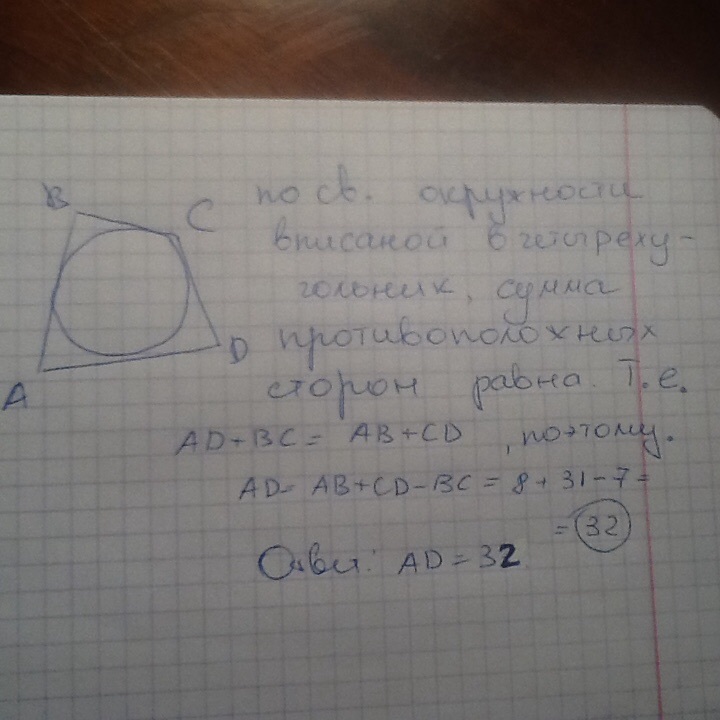 B
C
по св. окружности
вписаной в четыреху-
гольник, сумма
D
противоположных
A
сторон равна. Т.е.
AD+BC= AB+CD , поэтому.
AD= AB+CD-BC = 8+31-7=
=32
Ответ: AD=32